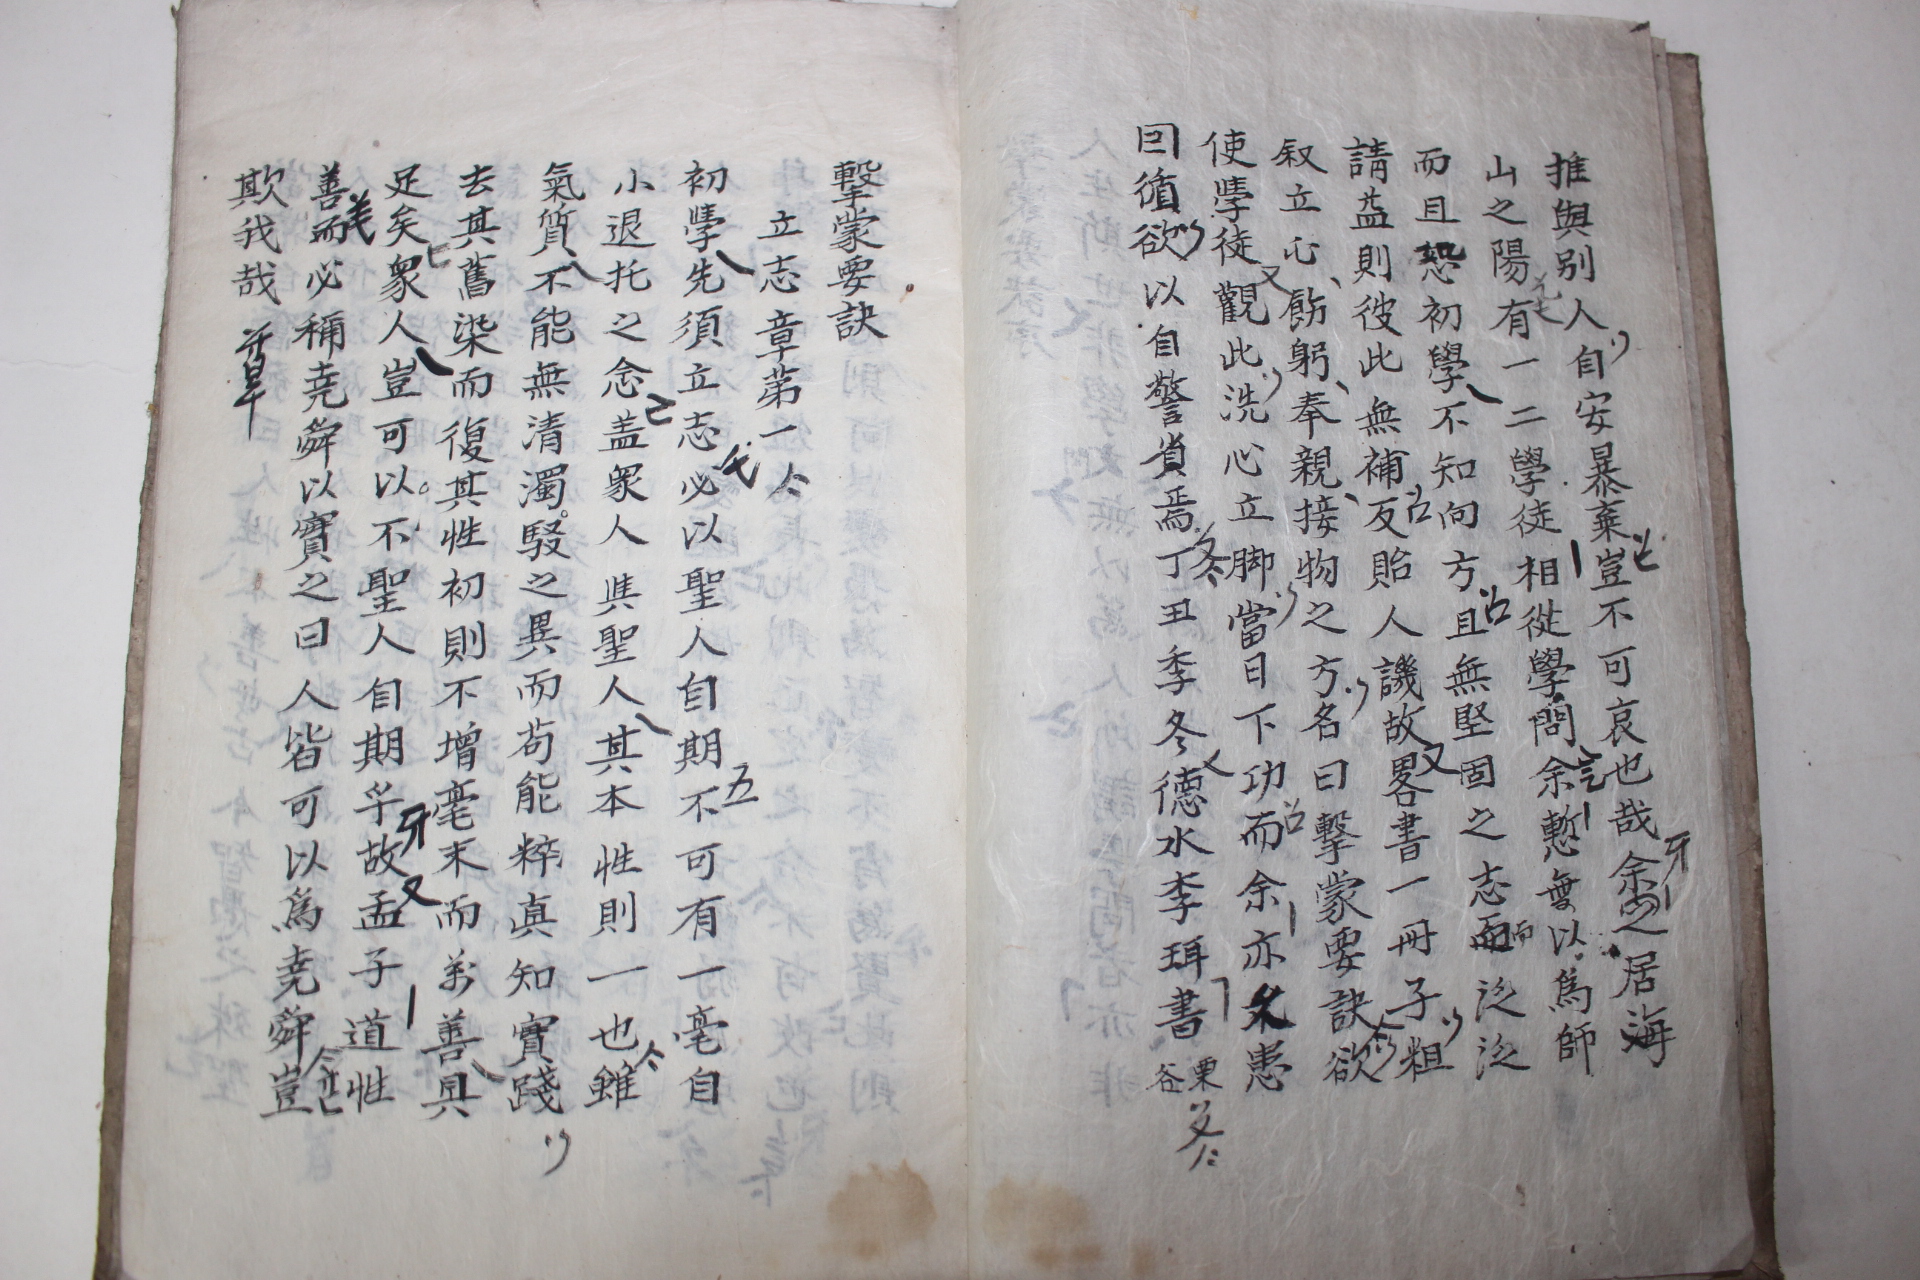 推與別人自安暴棄豈不可哀也哉余之居海
山之陽有一二學徒相從學問余慙無以爲師
而且恐初學不知向方且無堅固之志而泛泛
請益則彼此無補反貽人譏故畧書一冊子粗
叙立心飭躬奉親接物之方名曰擊蒙要訣欲
使學徒觀此洗心立脚當日下功而余亦久患
因循欲以自警省焉丁丑季冬德水李珥書
栗谷
擊蒙要訣
立志章第一
初學先須立志必以聖人自期不可有一毫自
小退托之念盖衆人與聖人其本性則一也雖
氣質不能無清濁駁之異而苟能粹真知實踐
去其舊染而復其性初則不增毫末而萬善具
足矣衆人豈可以不聖人自期乎故孟子道性
善而必稱堯舜以實之曰人皆可以爲堯舜豈
欺我哉